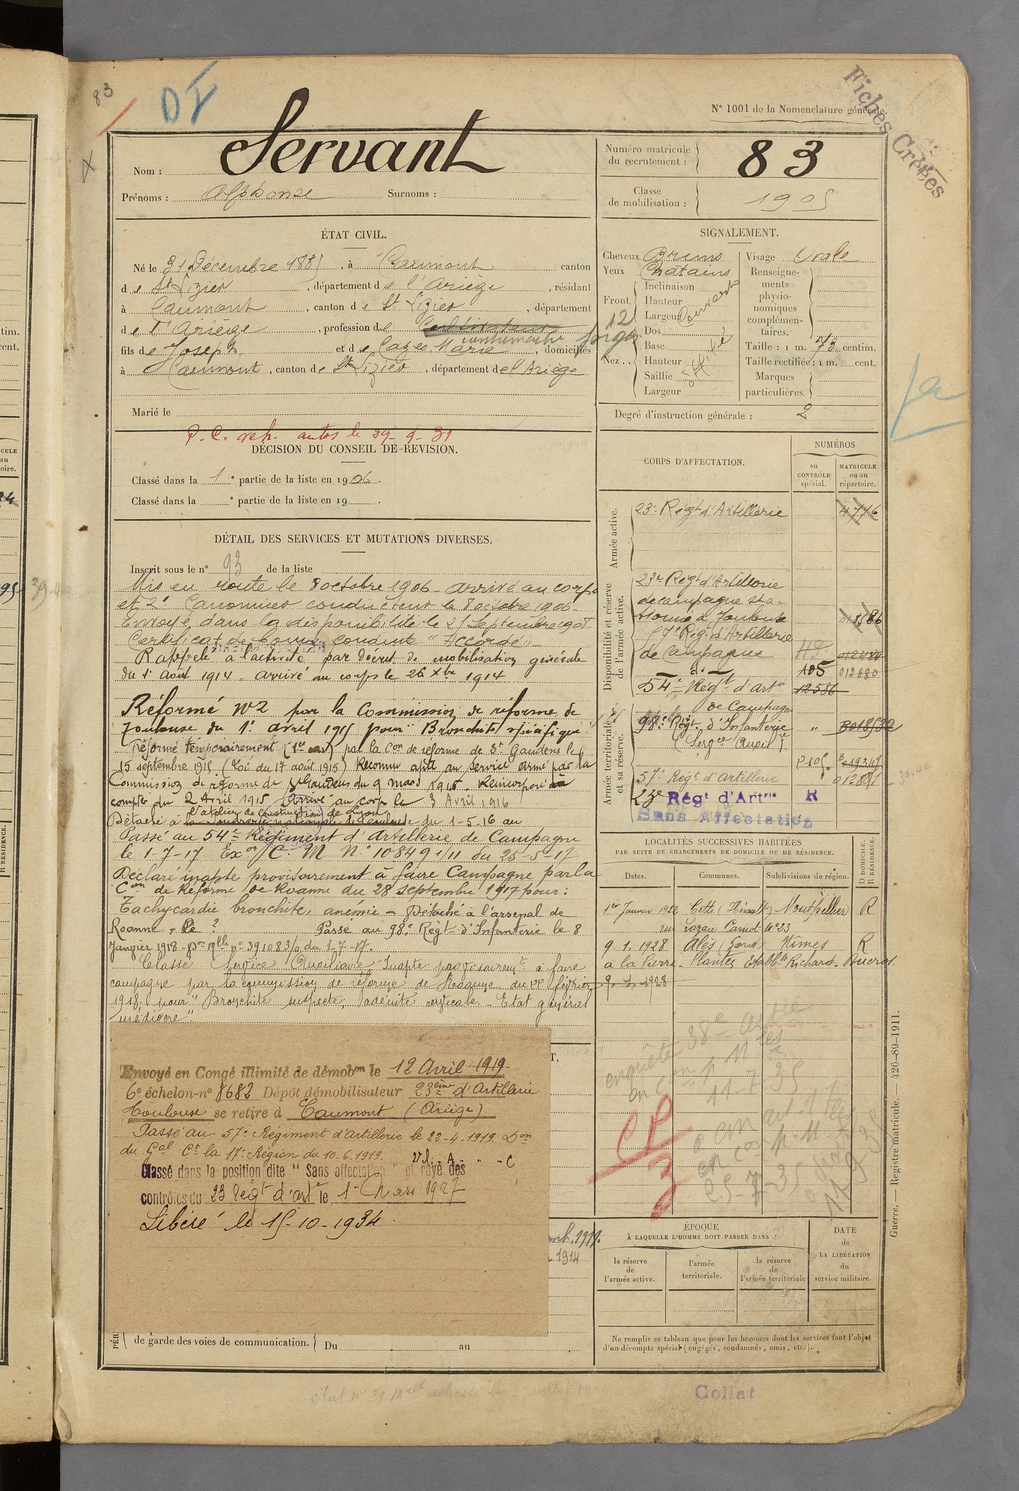 83
DI
N° 1001 de la Nomenclature générale.
Fiches Croisées
Nom : Servant
Prénoms : Alphonse Surnoms :
Numéro matricule du recrutement : 83
Classe de mobilisation : 1905
ÉTAT CIVIL.
Né le 31 Décembre 1885, à Caumont canton
de St Lizier, département de l'Ariège, résidant
à Caumont, canton de St Lizier, département
de l'Ariège, profession de Cultivateur
contremaître forges
fils de Joseph et de Cazes Marie, domiciliés
à Caumont, canton de St Lizier, département de l'Ariège
Marié le
SIGNALEMENT.
Cheveux Bruns
Yeux Châtains
Front. Inclinaison
Hauteur
Largeur
Nez... Dos
Base
Hauteur
Saillie
Largeur
Visage Ovale
Renseignements physionomiques complémentaires.
Taille : 1 m. 73 centim.
Taille rectifiée : 1 m. cent.
Marques particulières.
Degré d'instruction générale : 2
DÉCISION DU CONSEIL DE RÉVISION.
Classé dans la 1e partie de la liste en 1906.
Classé dans la e partie de la liste en 19
DÉTAIL DES SERVICES ET MUTATIONS DIVERSES.
Inscrit sous le n° 93 de la liste
Mis en route le 8 octobre 1906 arrivé au corps
et 2e Canonnier conducteur le 8 octobre 1906
Envoyé dans la disponibilité le 21 Septembre 1908
Certificat de bonne conduite "Accordé"
Rappelé à l'activité par décret de mobilisation générale
du 1er Août 1914. arrivé au corps le 26 Xbre 1914
Réformé N°2 par la Commission de réforme de
Toulouse du 1er avril 1915 pour Bronchite spécifique
Réformé temporairement (1er cas) par la Con de réforme de St Gaudens le
15 septembre 1915 (Loi du 17 août 1915) Reconnu apte au service armé par la
Commission de réforme de St Gaudens du 9 mars 1916. Réincorporé à
compter du 2 Avril 1915 Arrivé au corps le 3 Avril 1916
Détaché à l'atelier de construction de Lyon du 1-5-16 au
Passé au 54e Régiment d'Artillerie de Campagne
le 1-7-17 Exon C. M. N° 10849 1/11 du 25-5-17
Déclaré inapte provisoirement à faire Campagne par la
Con de Réforme de Roanne du 28 septembre 1917 pour :
Tachycardie bronchite, anémie - Détaché à l'arsenal de
Roanne Passé au 98e Régt d'Infanterie le 8
Janvier 1918
Classé Service Auxiliaire Inapte provisoiremt à faire
campagne par la commission de réforme de Roanne du 1er février
1918 pour "Bronchite suspecte, adénite cervicale - Etat général
médiocre".
Envoyé en Congé illimité de démobon le 12 Avril 1919
6e échelon - n° 8682 Dépôt démobilisateur 23ème d'Artillerie
Toulouse se retire à Caumont (Ariège)
Passé au 57e Régiment d'artillerie le 22-4-1919. Don
du Gal Ct la 17e Région du 10.6.1919.
Classé dans la position dite "Sans affectation" et rayé des
contrôles du 23 Régt d'artie le 1er Mars 1927
Libéré le 15-10-1934.
de garde des voies de communication. Du au
CORPS D'AFFECTATION.
NUMÉROS
au CONTRÔLE spécial.
MATRICULE ou au répertoire.
Armée active.
23e Régt d'Artillerie 4776
Disponibilité et réserve de l'armée active.
23e Régt d'Artillerie
de campagne sta-
tionné à Toulouse
57e Régt d'Artillerie
de Campagne
105
54e Régt d'artie 12586
de Campagne
Armée territoriale et sa réserve.
98e Régt d'Infanterie
57e Régt d'artillerie
23e Régt d'Artrie R
Sans Affectation
LOCALITÉS SUCCESSIVES HABITÉES
PAR SUITE DE CHANGEMENTS DE DOMICILE OU DE RÉSIDENCE.
Dates. Communes. Subdivisions de région. D DOMICILE. R RÉSIDENCE.
1er Janvier 1922 Cette (Hérault) Montpellier R
rue Lazare Carnot N°23
9-1-1928 Alès (Gard) Nîmes R
enquête 38e Artie
11-7-35
ÉPOQUE
À LAQUELLE L'HOMME DOIT PASSER DANS :
la réserve de l'armée active.
l'armée territoriale.
la réserve de l'armée territoriale
DATE de LA LIBÉRATION du service militaire.
Ne remplir ce tableau que pour les hommes dont les services font l'objet
d'un décompte spécial (engagés, condamnés, omis, etc.).
Guerre. — Registre matricule. — 426-89-1911.
Collat